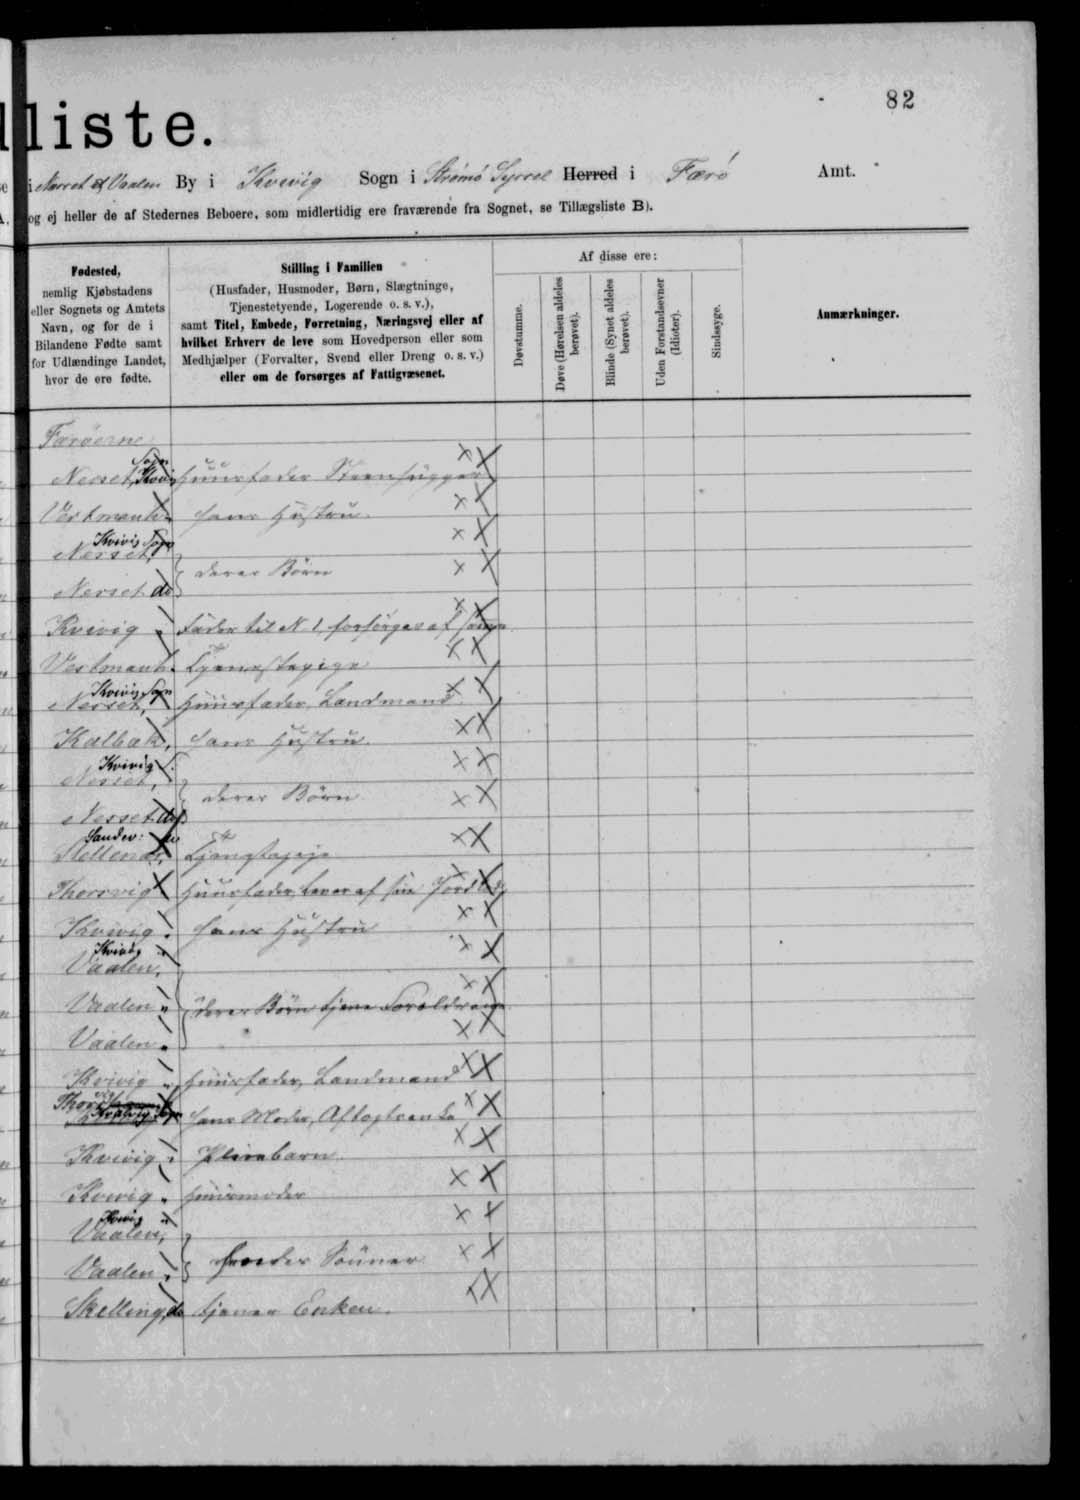 82
liste.
i Nørret & Vaalen By i Kvivig Sogn i Strømø Syssel Herred i Færø Amt.
og ej heller de af Stedernes Beboere, som midlertidig ere fraværende fra Sognet, se Tillægsliste B).
Fødested,
nemlig Kjøbstadens
eller Sognets og Amtets
Navn, og for de i
Bilandene Fødte samt
for Udlændinge Landet,
hvor de ere fødte.
Stilling i Familien
(Husfader, Husmoder, Børn, Slægtninge,
Tjenestetyende, Logerende o. s. v.),
samt Titel, Embede, Forretning, Næringsvej eller af
hvilket Erhverv de leve som Hovedperson eller som
Medhjælper (Forvalter, Svend eller Dreng o. s. v.)
eller om de forsørges af Fattigvæsenet.
Af disse ere:
Døvstumme.
Døve (Hørelsen aldeles
berøvet).
Blinde (Synet aldeles
berøvet).
Uden Forstandsevner
(Idioter).
Sindssyge.
Anmærkninger.
Færöerne
Nesset, Huusfader Steenhugger
Vestmanh. hans Hustru
Kvivig Sogn
Nesset,
deres Börn
Nesset do
Kvivig Fader til N. 1, forsörges af
Vestmanh. Tjenestepige
Kvivig Sogn
Nesset, Huusfader, Landmand
Kalbak, hans Hustru
Kvivig S:
Nesset,
deres Börn
Nesset do
Sander:
Tjenstepige
Thorsvig Huusfader, lever af sin Jordlod
Kvivig hans Hustru
Kvivig
Vaalen,
Vaalen deres Börn tjene Forældrene
Vaalen
Kvivig Huusfader, Landmand
hans Moder, Aftægtsenke
Kvivig Pleiebarn
Kvivig Huusmoder
Kvivig
Vaalen,
Vaalen Sönner
Skelling, do tjener Enken.